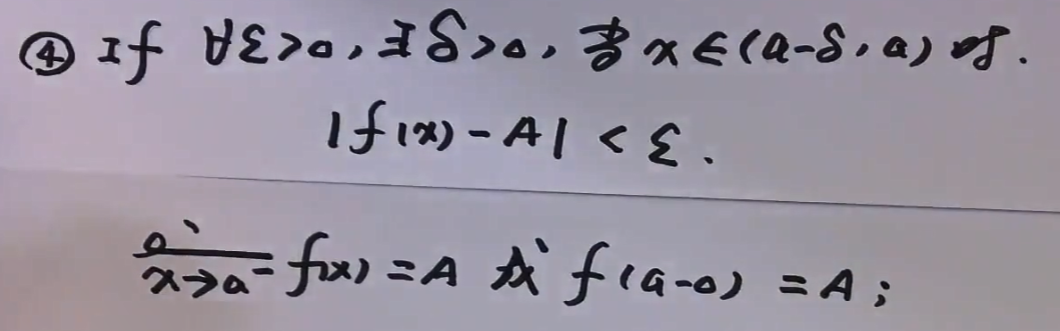 ④ If ∀ε>0, ∃δ>0, 当 x∈(a-δ, a) 时.
|f(x)-A| < ε.
x→a⁻ f(x) = A 或 f(a-0) = A;